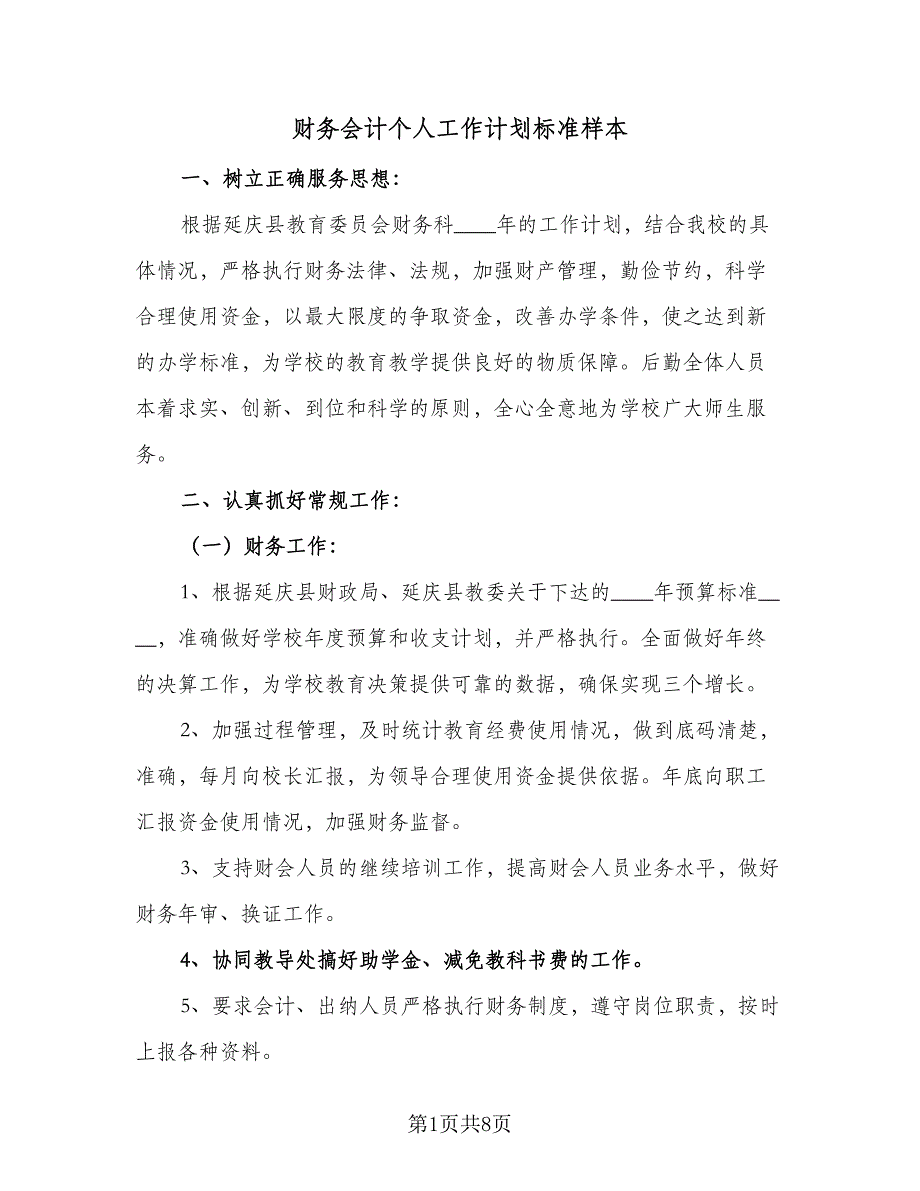 财务会计个人工作计划标准样本
一、树立正确服务思想：
根据延庆县教育委员会财务科____年的工作计划，结合我校的具
体情况，严格执行财务法律、法规，加强财产管理，勤俭节约，科学
合理使用资金，以最大限度的争取资金，改善办学条件，使之达到新
的办学标准，为学校的教育教学提供良好的物质保障。后勤全体人员
本着求实、创新、到位和科学的原则，全心全意地为学校广大师生服
务。
二、认真抓好常规工作：
（一）财务工作：
1、根据延庆县财政局、延庆县教委关于下达的____年预算标准__
__，准确做好学校年度预算和收支计划，并严格执行。全面做好年终
的决算工作，为学校教育决策提供可靠的数据，确保实现三个增长。
2、加强过程管理，及时统计教育经费使用情况，做到底码清楚，
准确，每月向校长汇报，为领导合理使用资金提供依据。年底向职工
汇报资金使用情况，加强财务监督。
3、支持财会人员的继续培训工作，提高财会人员业务水平，做好
财务年审、换证工作。
4、协同教导处搞好助学金、减免教科书费的工作。
5、要求会计、出纳人员严格执行财务制度，遵守岗位职责，按时
上报各种资料。
第1页共8页